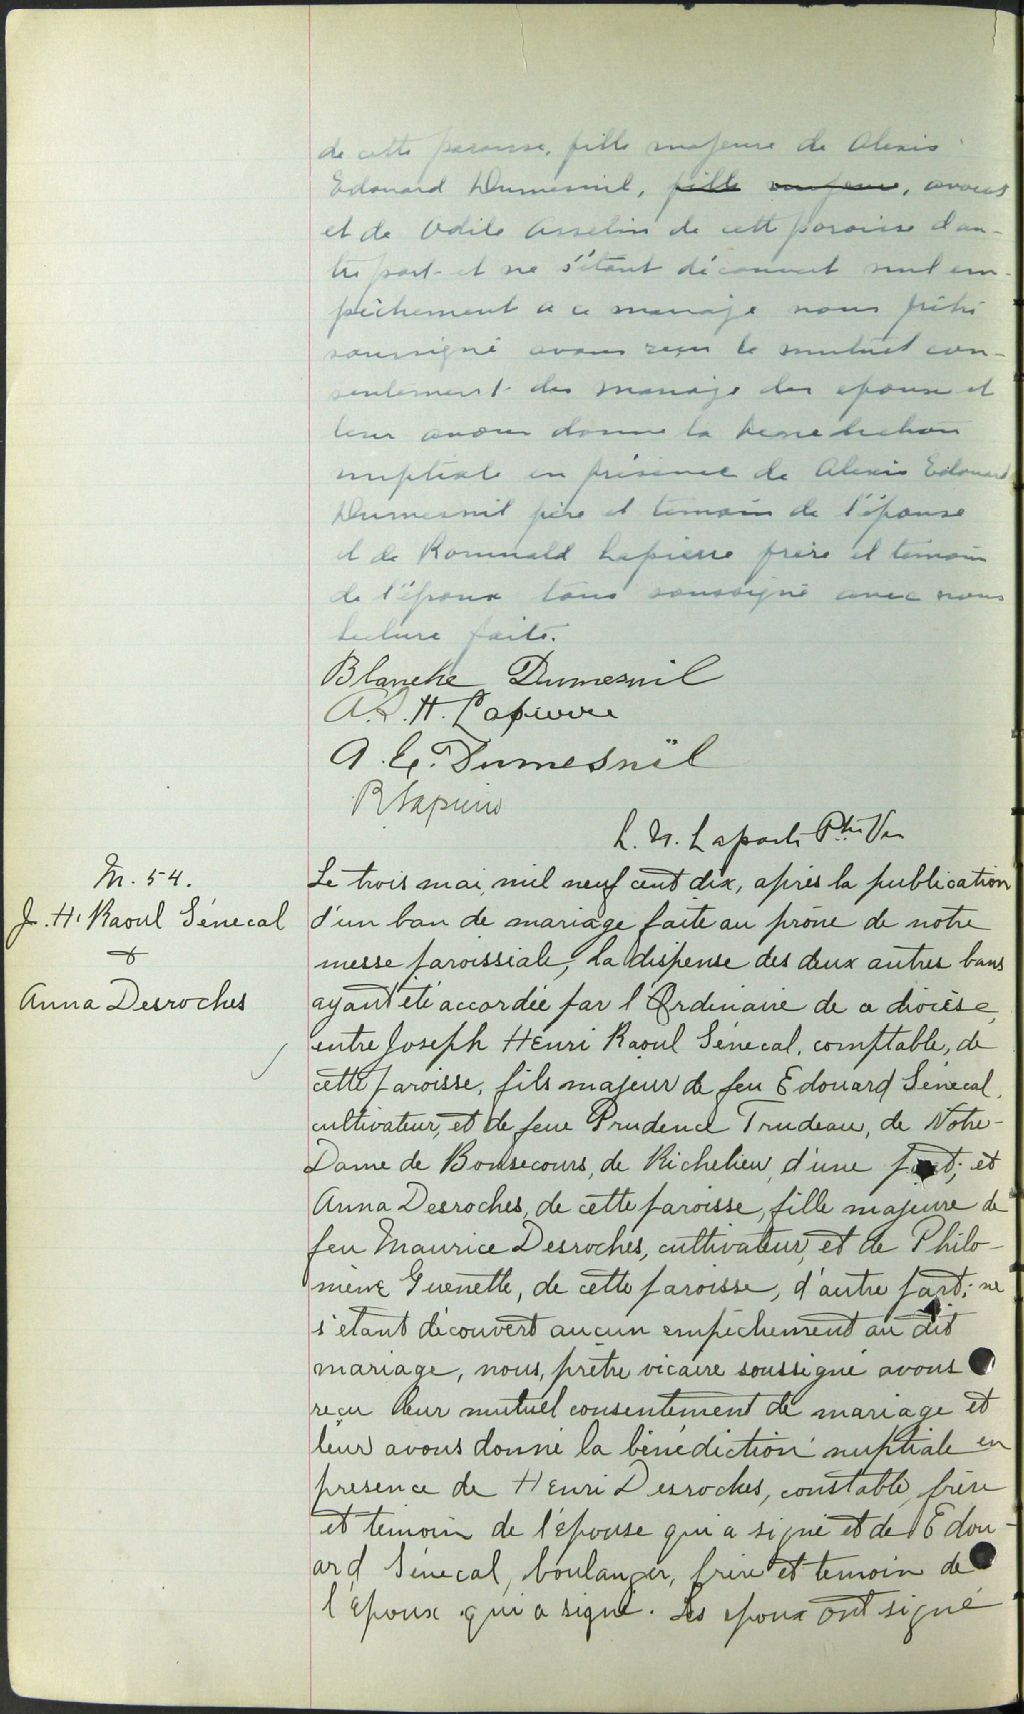 de cette paroisse, fille majeure de Alexis
Edouard Dumesnil, fille majeure, avocat
et de Odile Asselin de cette paroisse d'au-
tre part et ne s'étant découvert nul em-
pêchement a ce mariage nous prêtre
soussigné avons reçu le mutuel con-
sentement de mariage des epoux et
leur avons donné la benediction
nuptiale en présence de Alexis Edouard
Dumesnil père et temoin de l'épouse
et de Romuald Lapierre frère et temoin
de l'époux tous soussigné avec nous
Lecture faite.
Blanche Dumesnil
A.L.H. Lapierre
A. E. Dumesnil
R Lapierre
L. N. Laporte Ptre Vic
M. 54.
J. H. Raoul Sénecal
&
Anna Desroches
Le trois mai, mil neuf cent dix, après la publication
d'un ban de mariage faite au prône de notre
messe paroissiale, la dispense des deux autres bans
ayant été accordée par l'Ordinaire de ce diocèse,
entre Joseph Henri Raoul Sénecal, comptable, de
cette paroisse, fils majeur de feu Edouard Sénecal,
cultivateur, et de feue Prudence Trudeau, de Notre-
Dame de Bonsecours, de Richelieu, d'une part; et
Anna Desroches, de cette paroisse, fille majeure de
feu Maurice Desroches, cultivateur, et de Philo-
mène Guenette, de cette paroisse, d'autre part; ne
s'etant découvert aucun empêchement au dit
mariage, nous, prêtre vicaire soussigné avons
reçu leur mutuel consentement de mariage et
leur avons donné la bénédiction nuptiale en
presence de Henri Desroches, constable, frère
et temoin de l'épouse qui a signé et de Edou-
ard Sénecal, boulanger, frère et temoin de
l'époux qui a signé. Les epoux ont signé